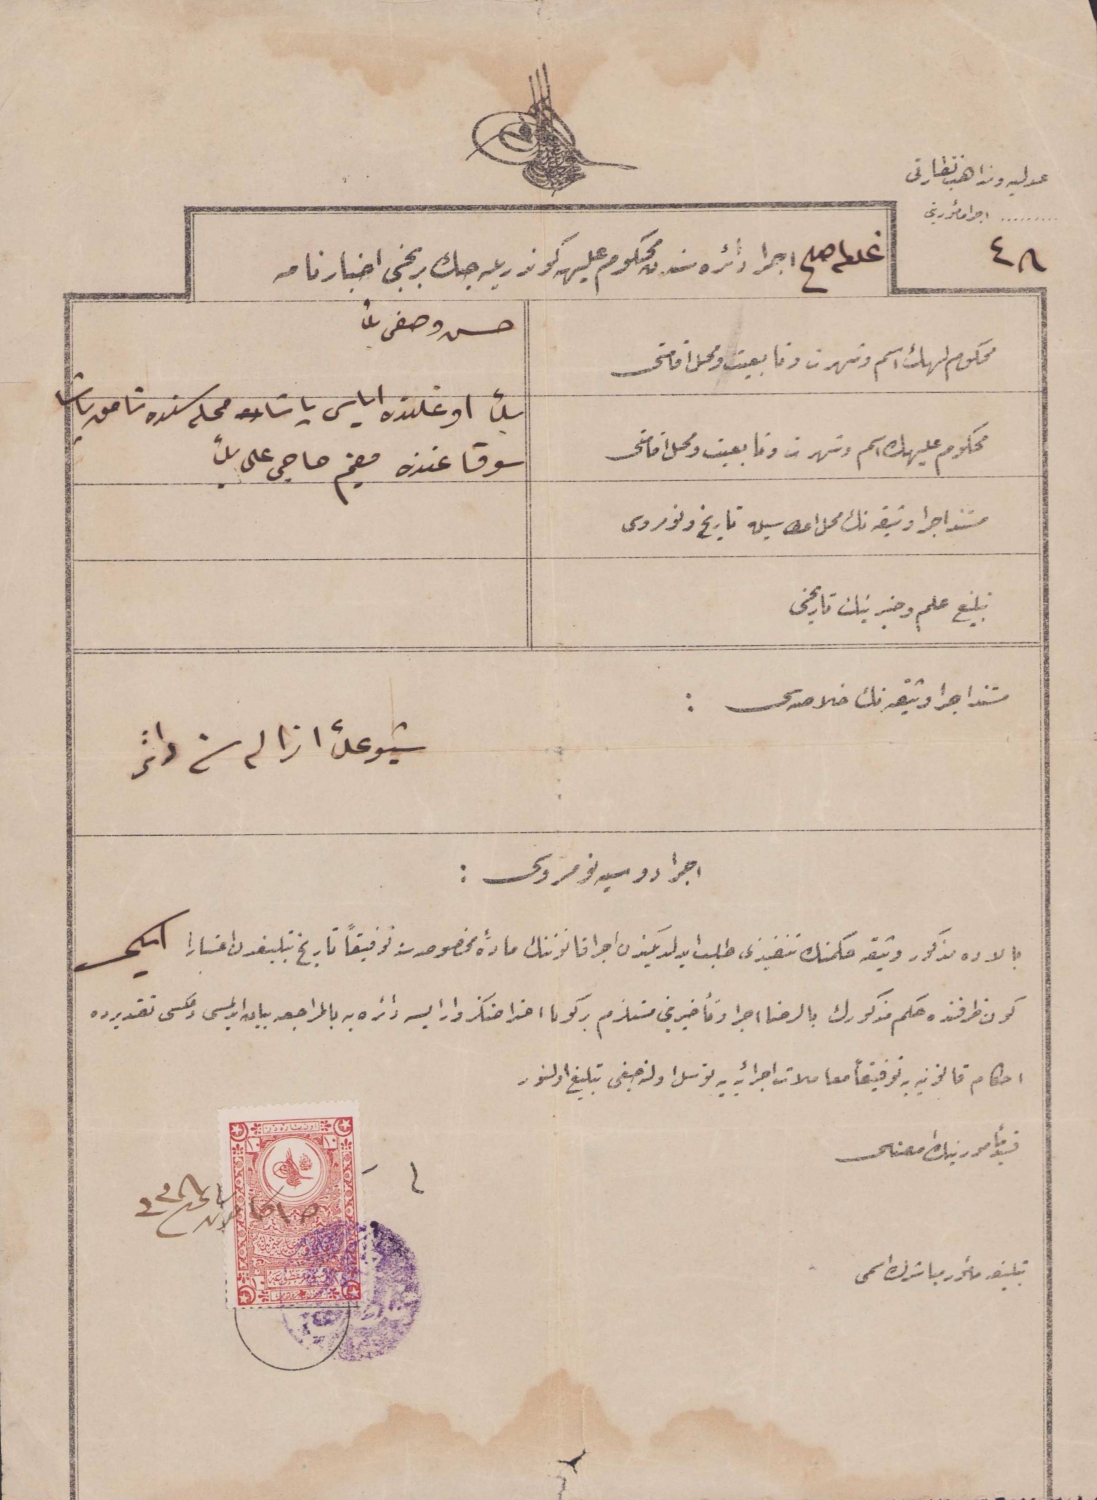 عدلیه و مذاهب نظارتی
......... اجرا مأموریتی
٤٨
غلطه صلح اجرا دائره سندن محکوم علیهه کوندریله جک برنجی اخبارنامه
محکوم لهک اسم و شهرت و تابعیت و محل اقامتی
حسن وصفی بك
محکوم علیهك اسم و شهرت و تابعیت و محل اقامتی
بك اوغلنده ایاس پاشا محله سنده پاشا
سوقاغنده مقیم حاجی علی بك
مستند اجرا وثیقه نك محل اعطاسیله تاریخ و نومروسی
تبلیغ علم و خبرینك تاریخی
مستند اجرا وثیقه نك خلاصه سی :
شیوعك ازاله سنه دائر
اجرا دوسیه نومروسی :
بالاده مذکور وثیقه حکمنك تنفیذی طلب ایدلدیکندن اجرا قانوننك ماده مخصوصه سنه توفیقاً تاریخ تبلیغدن اعتباراً ایکی
کون ظرفنده حکم مذکورك بالرضا اجرا و تأخیرینی مستلزم برکونا اعتراضکز وار ایسه دائره یه بالمراجعه بیان ایدلمسی و عکسی تقدیرده
احکام قانونیه یه توفیقاً معاملات اجرائیه یه توسل اولنه جغی تبلیغ اولنور
قید مأمورینك امضاسی
تبلیغه مأمور مباشرك اسمی